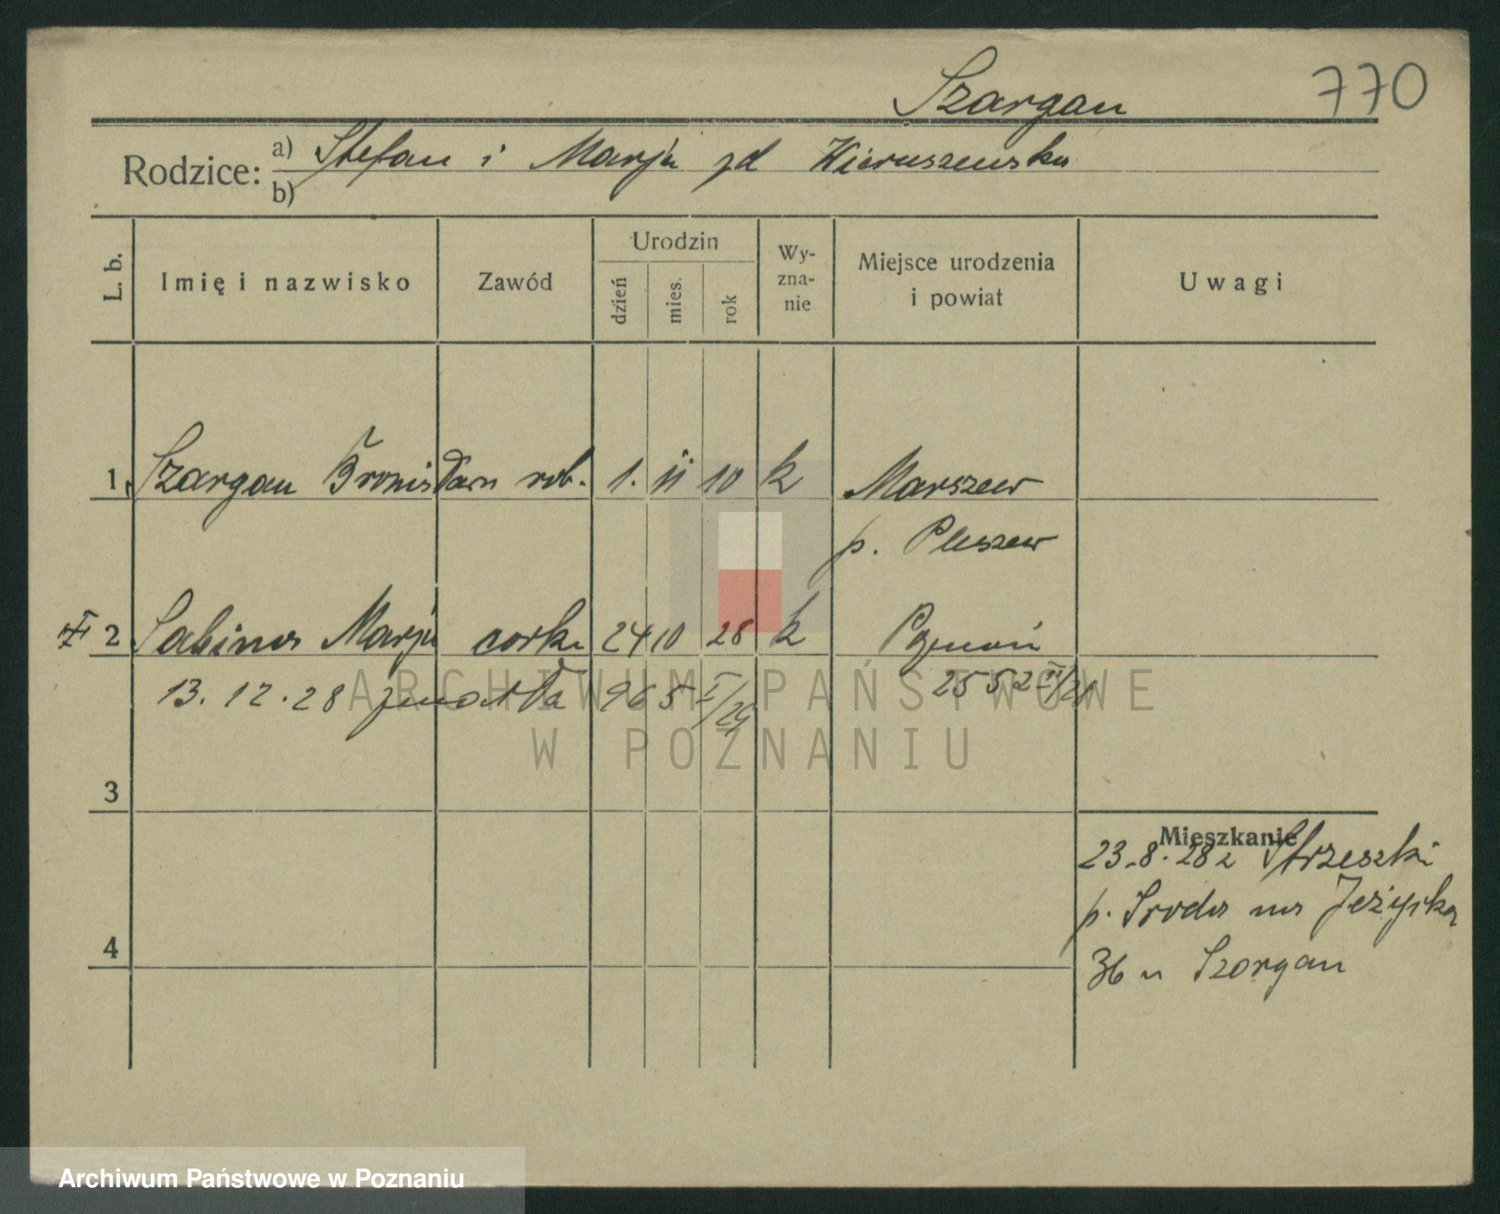 Szargan 770
Rodzice: a) Stefan i Marja zd Wieruszewska
b)
L. b. Imię i nazwisko Zawód Urodzin Wy-zna-nie Miejsce urodzenia i powiat Uwagi
dzień mies. rok
1 Szargan Bronisława rob. 1. 11 10 k Marszew
p. Pleszew
2 Sabina Marja corka 24 10 28 k Poznań
13.12.28 zmarła 965 I/29 2552 II/21
ARCHIWUM PAŃSTWOWE
W POZNANIU
3
Mieszkanie
23.8.28 z Strzeszki
p. Środa na Jeżycką
4
36 u Szargan
Archiwum Państwowe w Poznaniu